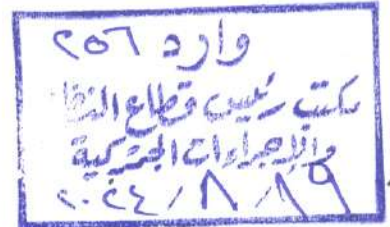 وارد ٢٥٦
مكتب رئيس قطاع النظم
والإجراءات الجمركية
٢٠٢٤/٨/١٩